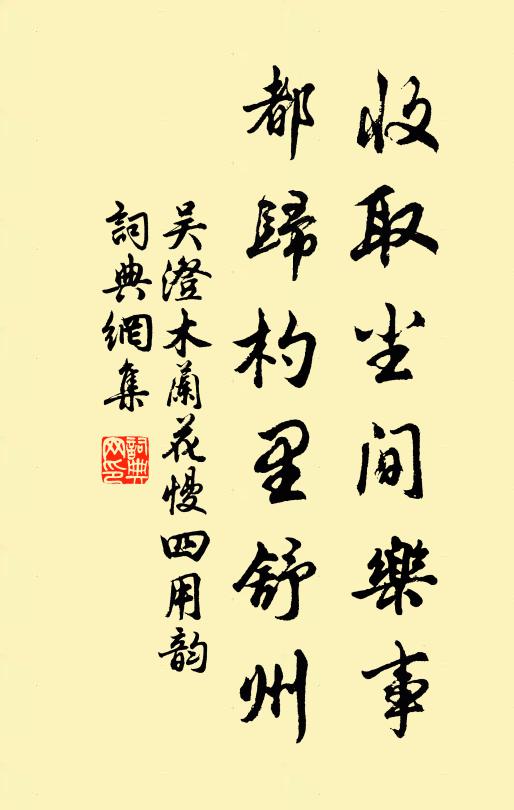 收取尘间樂事
都歸杓里舒州
吴澄木蘭花慢四用韵
詞典網集
詞典網印